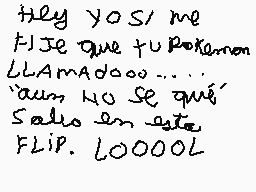 Hey YO SI me
FIJE que tu POKemon
LLAMADOOO.....
"aun NO Se qué"
Salio en este
FLIP. LOOOOL